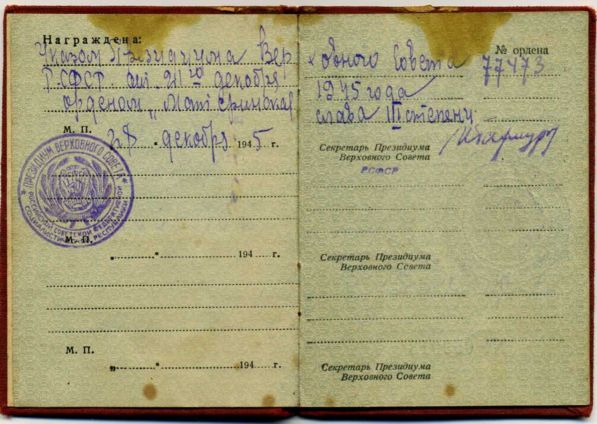 Награждена:
Указом Президиума Вер
РСФСР от 21го декабря
орденом „Материнская
М. П. 28 декабря 1945 г.
ПРЕЗИДИУМ ВЕРХОВНОГО СОВЕТА
РОССИЙСКОЙ СОВЕТСКОЙ ФЕДЕРАТИВНОЙ
СОЦИАЛИСТИЧЕСКОЙ РЕСПУБЛИКИ
М. П.
„ " 194 г.
М. П.
„ " 194 г.
№ ордена
ховного Совета 77473
1945 года
слава III степени
Секретарь Президиума
Верховного Совета
РСФСР
Секретарь Президиума
Верховного Совета
Секретарь Президиума
Верховного Совета